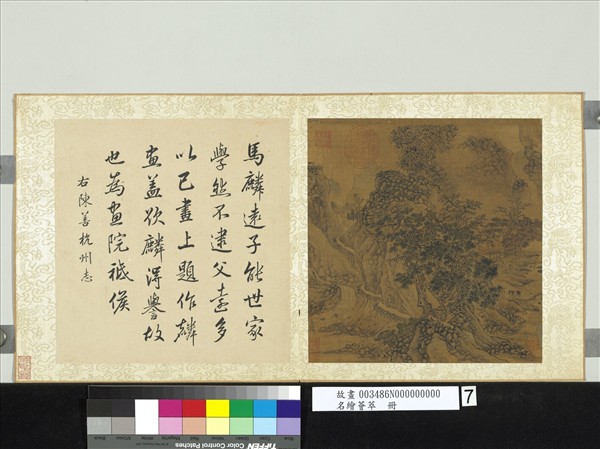 馬麟遠子能世家
學然不逮父遠多
以己畫上題作麟
畫蓋欲麟得譽故
也為畫院祗侯
右陳善杭州志
故畫 003486N000000000
名繪薈萃 冊
7
TIFFEN Color Control Patches